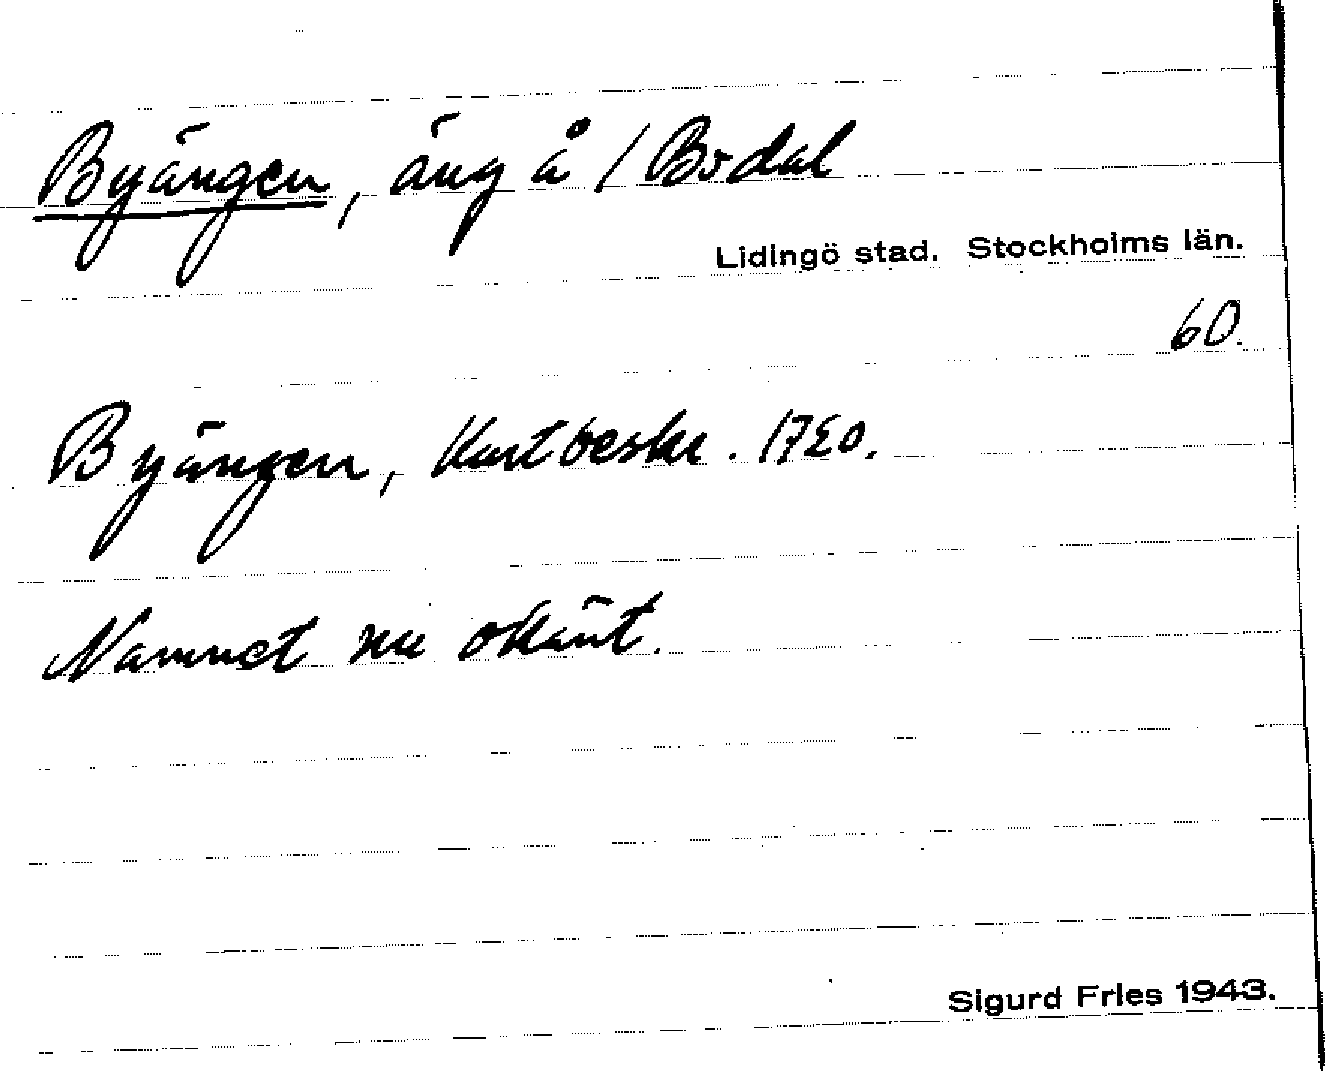 Byängen, äng å / Bodal
Lidingö stad. Stockholms län.
60.
Byängen, Kartbeskr. 1720.
Namnet nu okänt.
Sigurd Fries 1943.